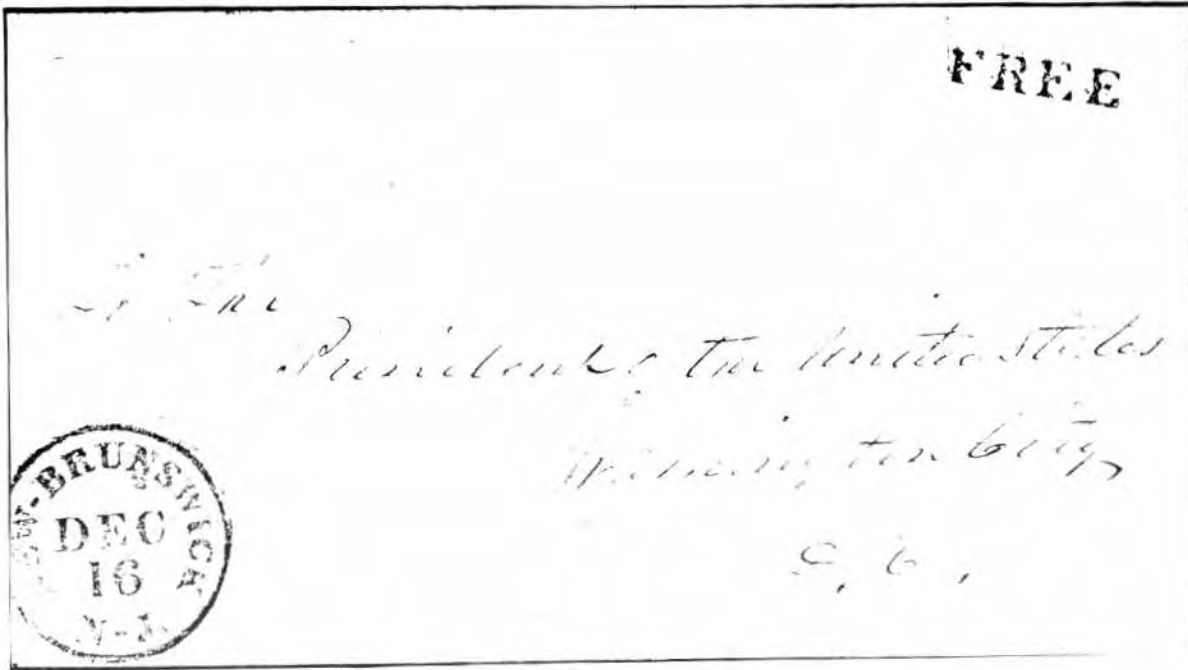 FREE
To The
President of the United States
Washington City,
D, C,
NEW-BRUNSWICK
DEC
16
N-J.